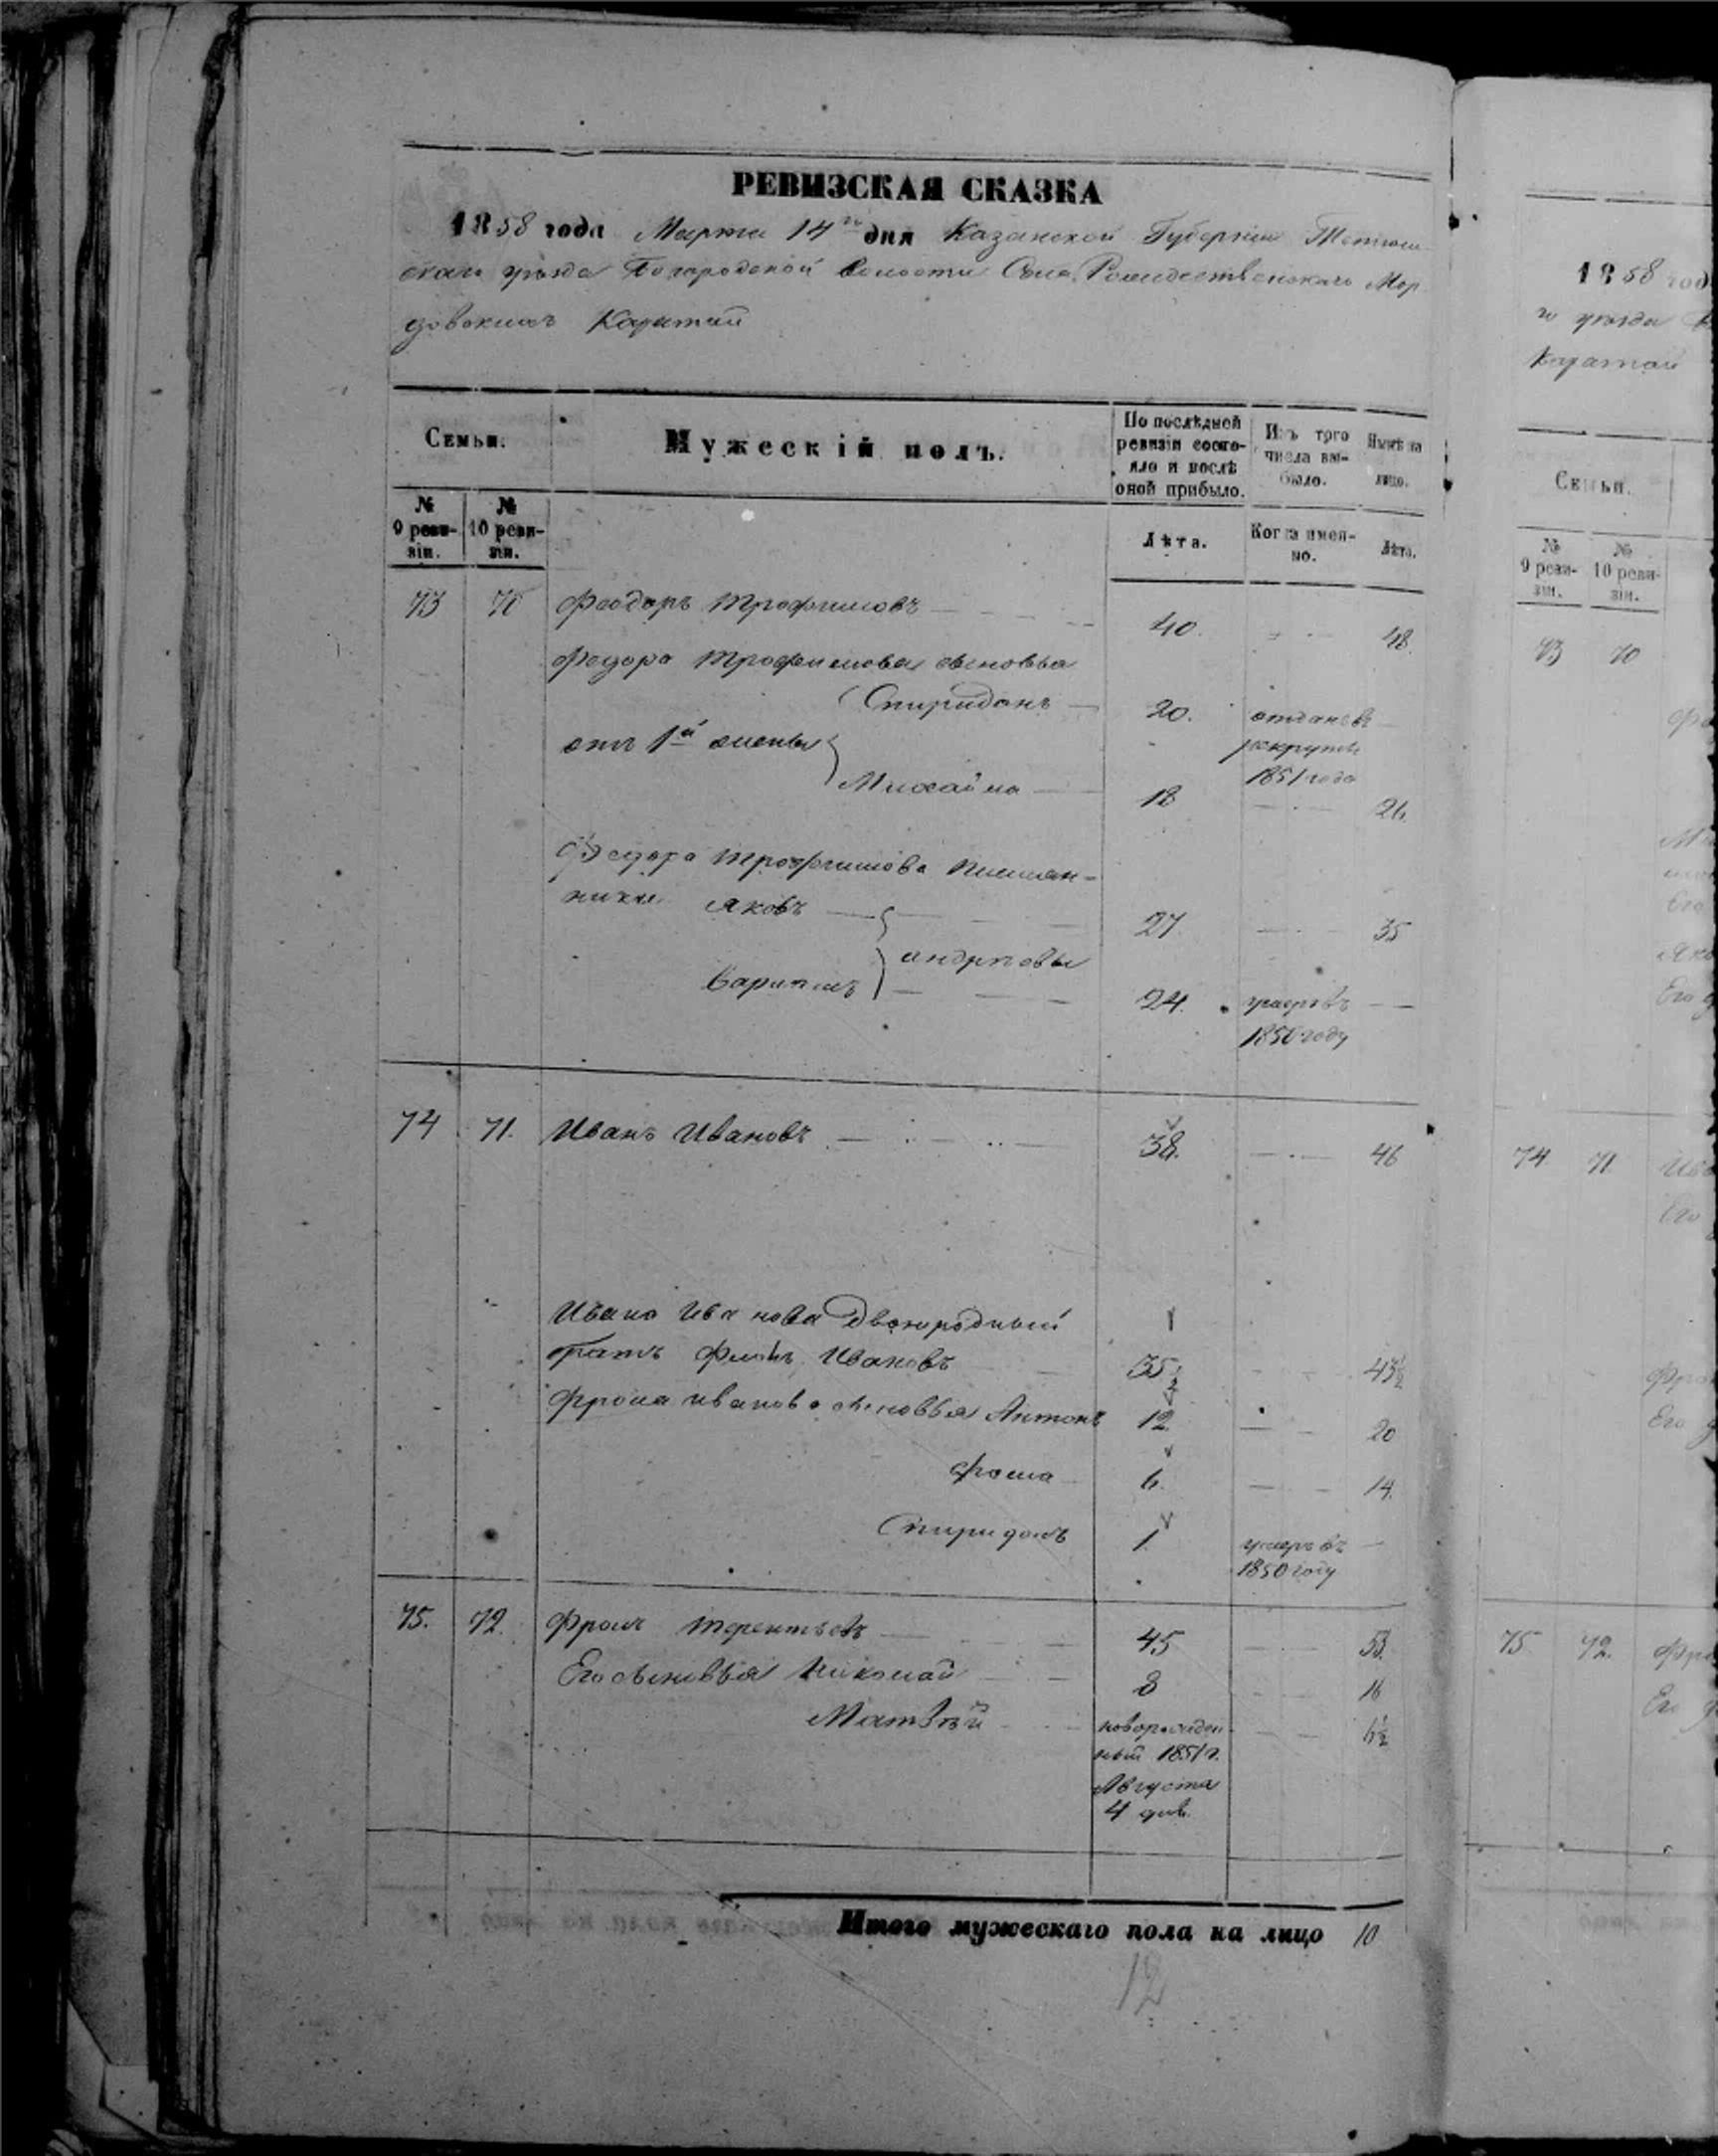 РЕВИЗСКАЯ СКАЗКА
1858 года Марта 14го дня Казанской Губернiи Тетюш-
скаго уѣзда Богородской волости Села Рождественскаго Мор-
довскихъ Каратай
Семьи.
Мужескiй полъ.
По послѣдней
ревизiи состо-
яло и послѣ
оной прибыло.
Изъ того
числа вы-
было.
Нынѣ на
лицо.
№
9 реви-
зiи.
№
10 реви-
зiи.
Лѣта.
Когда имен-
но.
Лѣта.
73 70 Феодоръ Трофимовъ 40. 48.
Федора Трофимова сыновья
Спиридонъ 20. отданъ въ
рекруты
1851 года
отъ 1й жены
Михайла 18 26.
Федора Трофимова племян-
ники Яковъ 27 35
андрѣевы
24. умеръ въ
1850 году
74 71. Иванъ Ивановъ 38. 46
Ивана Иванова Двоюродный
братъ Ивановъ 35½ 43½
Фрола иванова сыновья Антонъ 12 20
фома 6. 14.
Спиридонъ 1. умеръ въ
1850 году
75. 72. Фролъ Терентьевъ 45 53.
Его сыновья Николай 8 16
Матвѣй новорожден-
ный 1851 г.
Августа
4 дня.
6½
Итого мужескаго пола на лицо 10
12
1858 год
го уѣзда
Каратай
Семьи.
№
9 реви-
зiи.
№
10 реви-
зiи.
73 70
74 71
Его
75 72.
Его